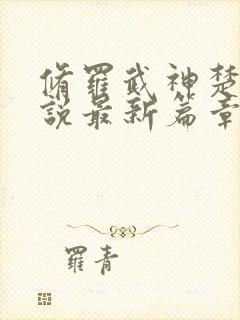 脩羅武神楚
說最新篇章
羅青